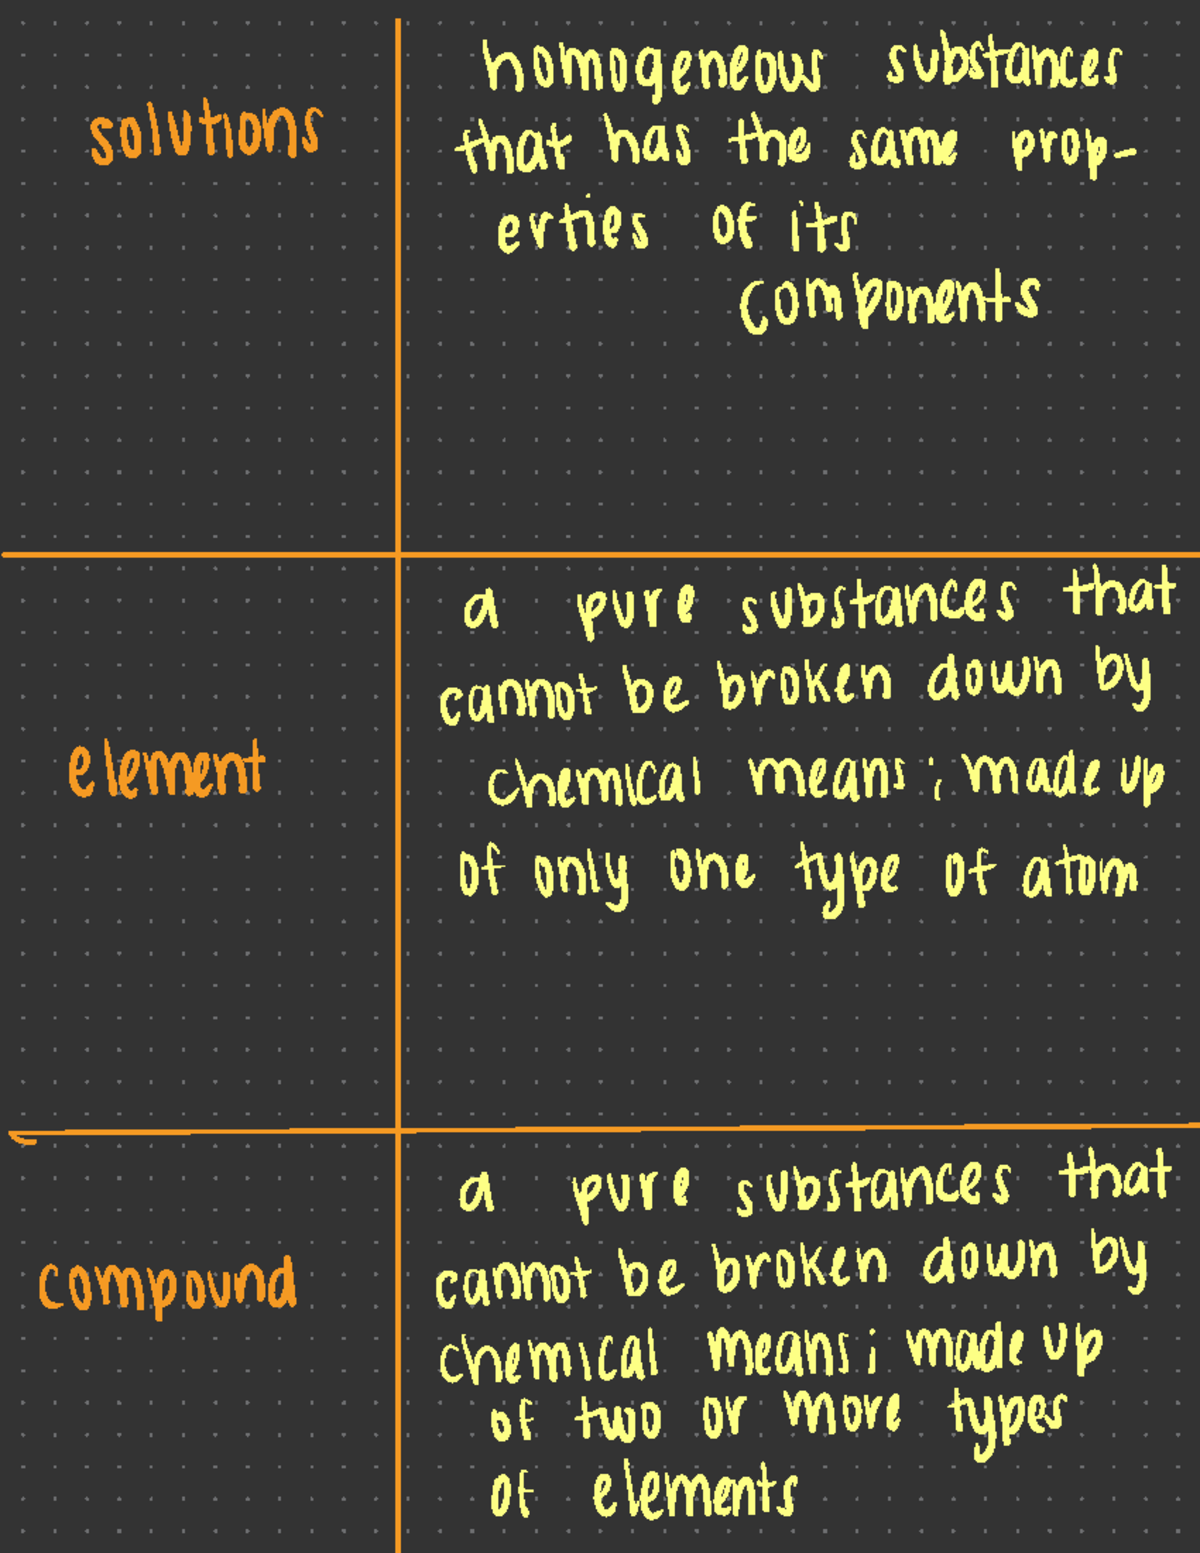 solutions
homogeneous substances
that has the same prop-
erties of its
components
element
a pure substances that
cannot be broken down by
chemical means; made up
of only one type of atom
compound
a pure substances that
cannot be broken down by
chemical means; made up
of two or more types
of elements